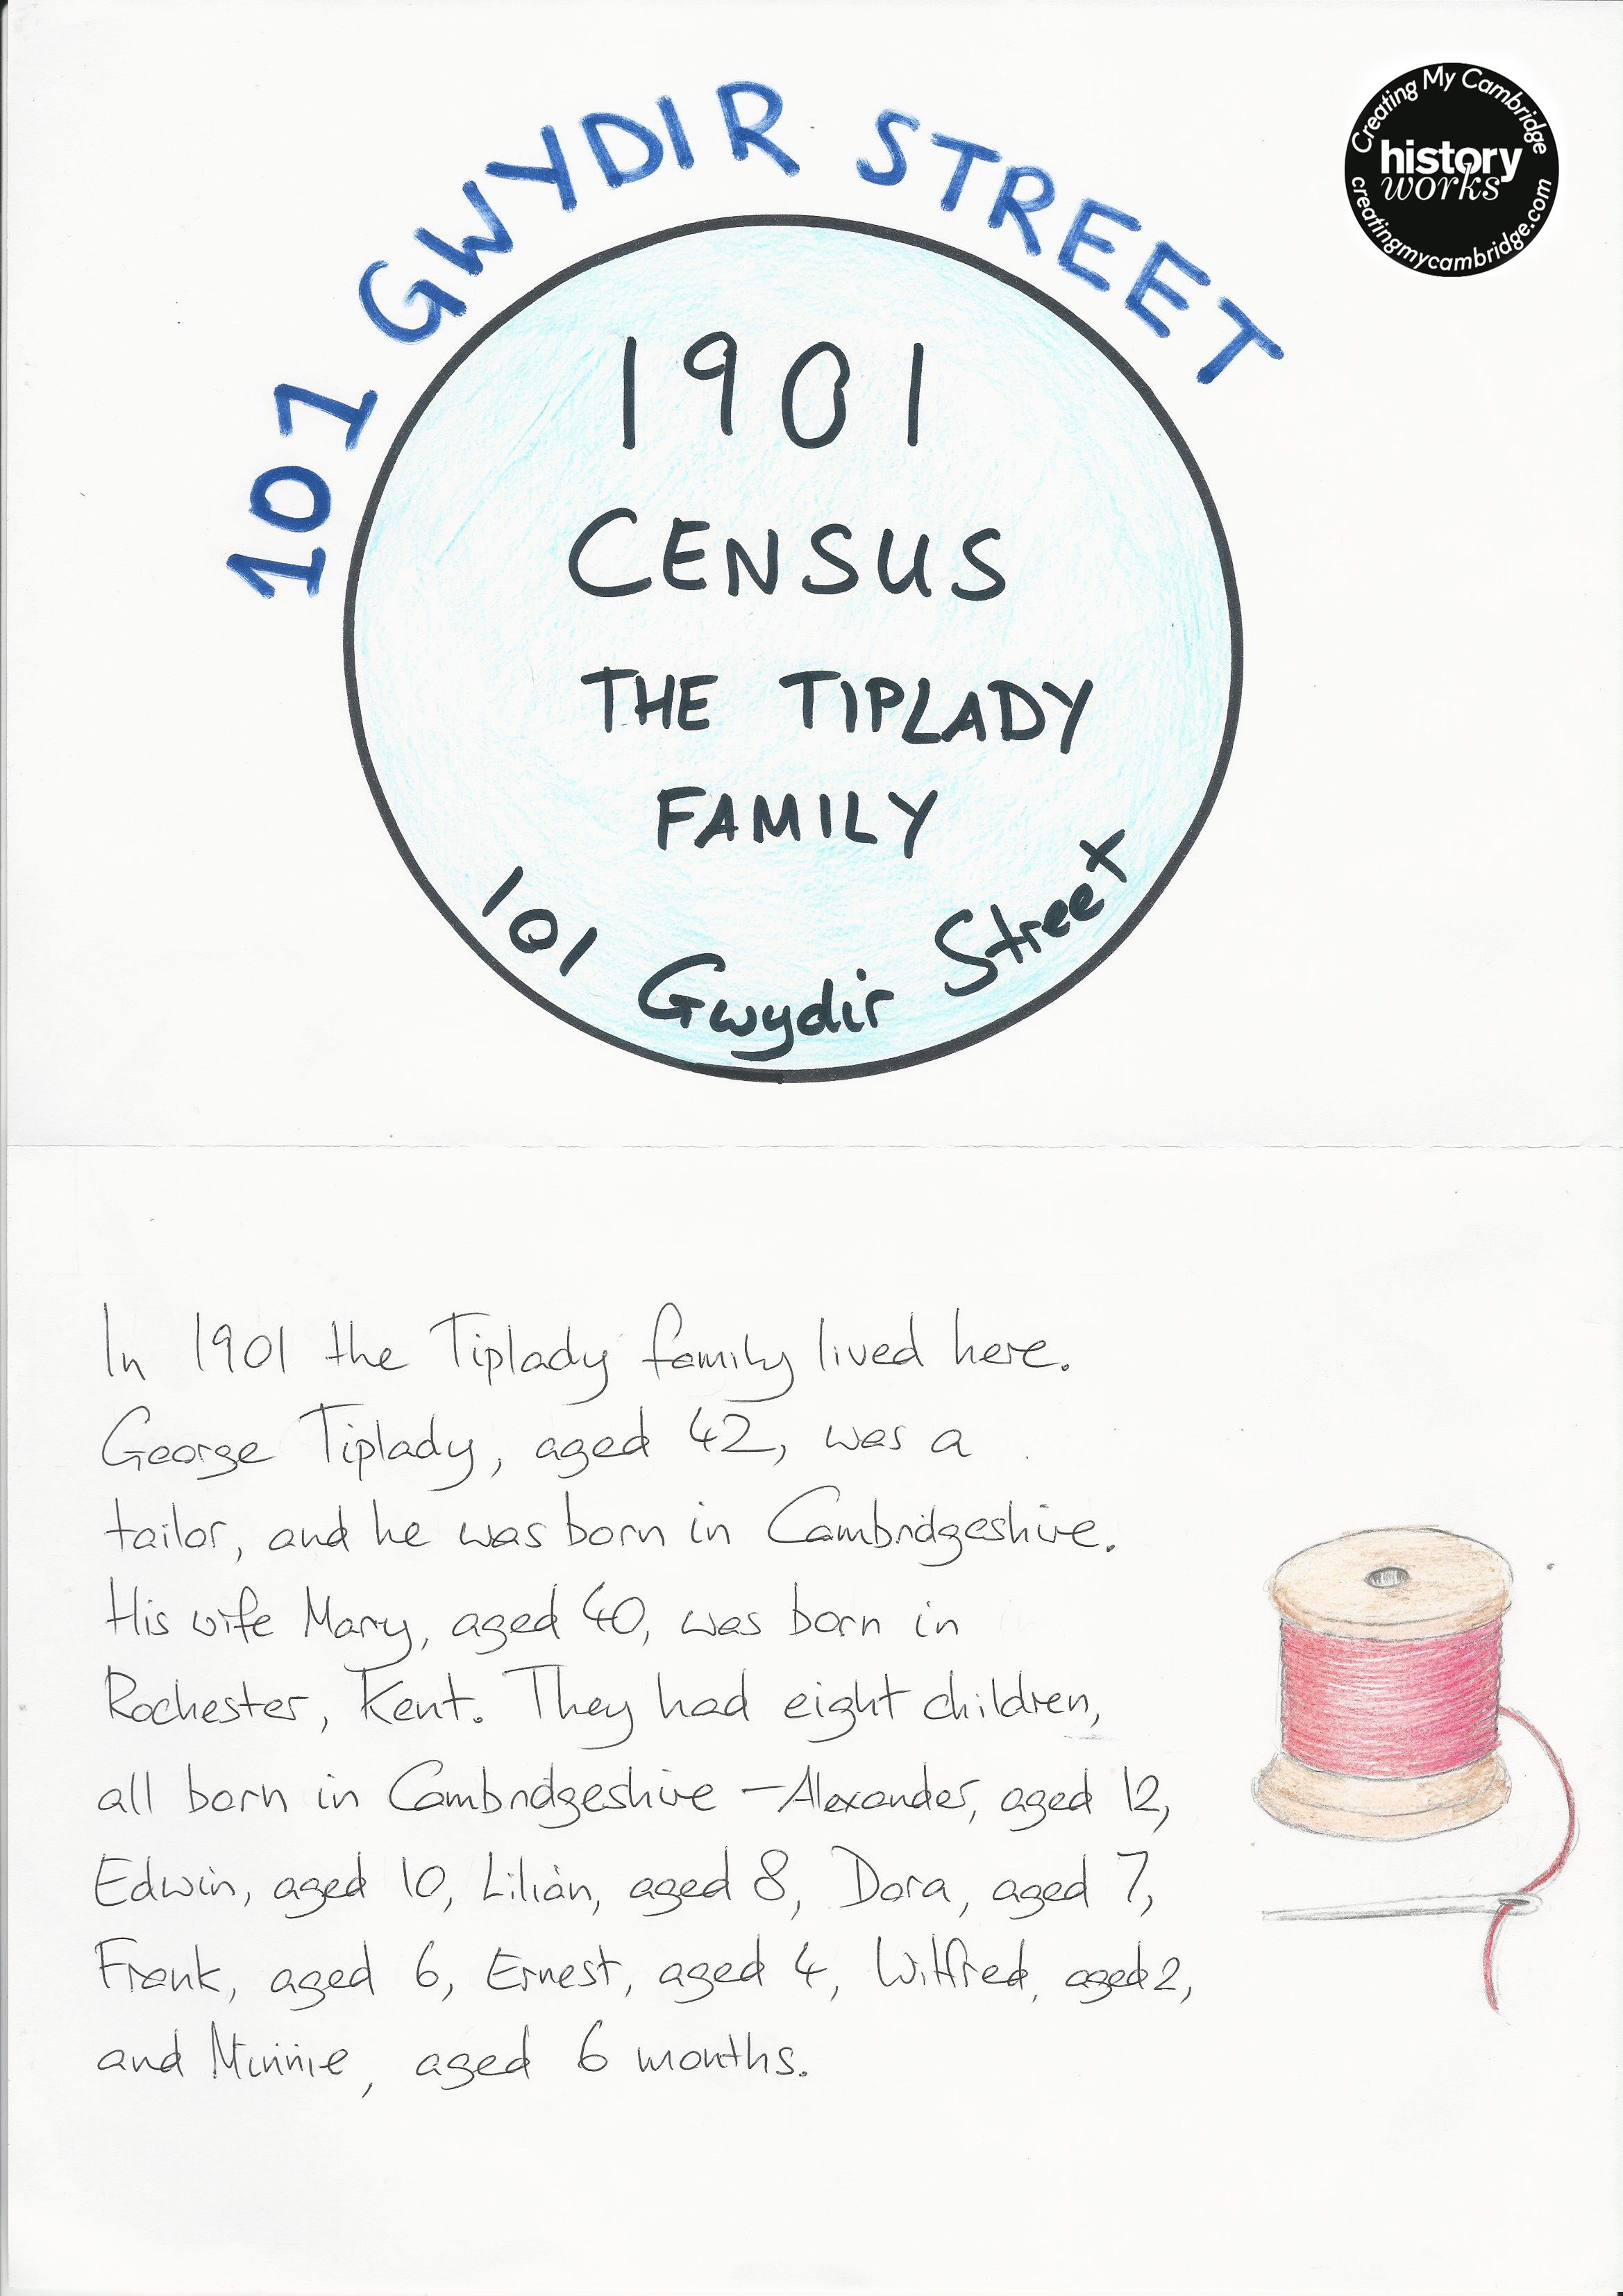 101 GWYDIR STREET
Creating My Cambridge
history
works
creatingmycambridge.com
1901
CENSUS
THE TIPLADY
FAMILY
101 Gwydir Street
In 1901 the Tiplady family lived here.
George Tiplady, aged 42, was a
tailor, and he was born in Cambridgeshire.
His wife Mary, aged 40, was born in
Rochester, Kent. They had eight children,
all born in Cambridgeshire – Alexander, aged 12,
Edwin, aged 10, Lilian, aged 8, Dora, aged 7,
Frank, aged 6, Ernest, aged 4, Wilfred, aged 2,
and Minnie, aged 6 months.